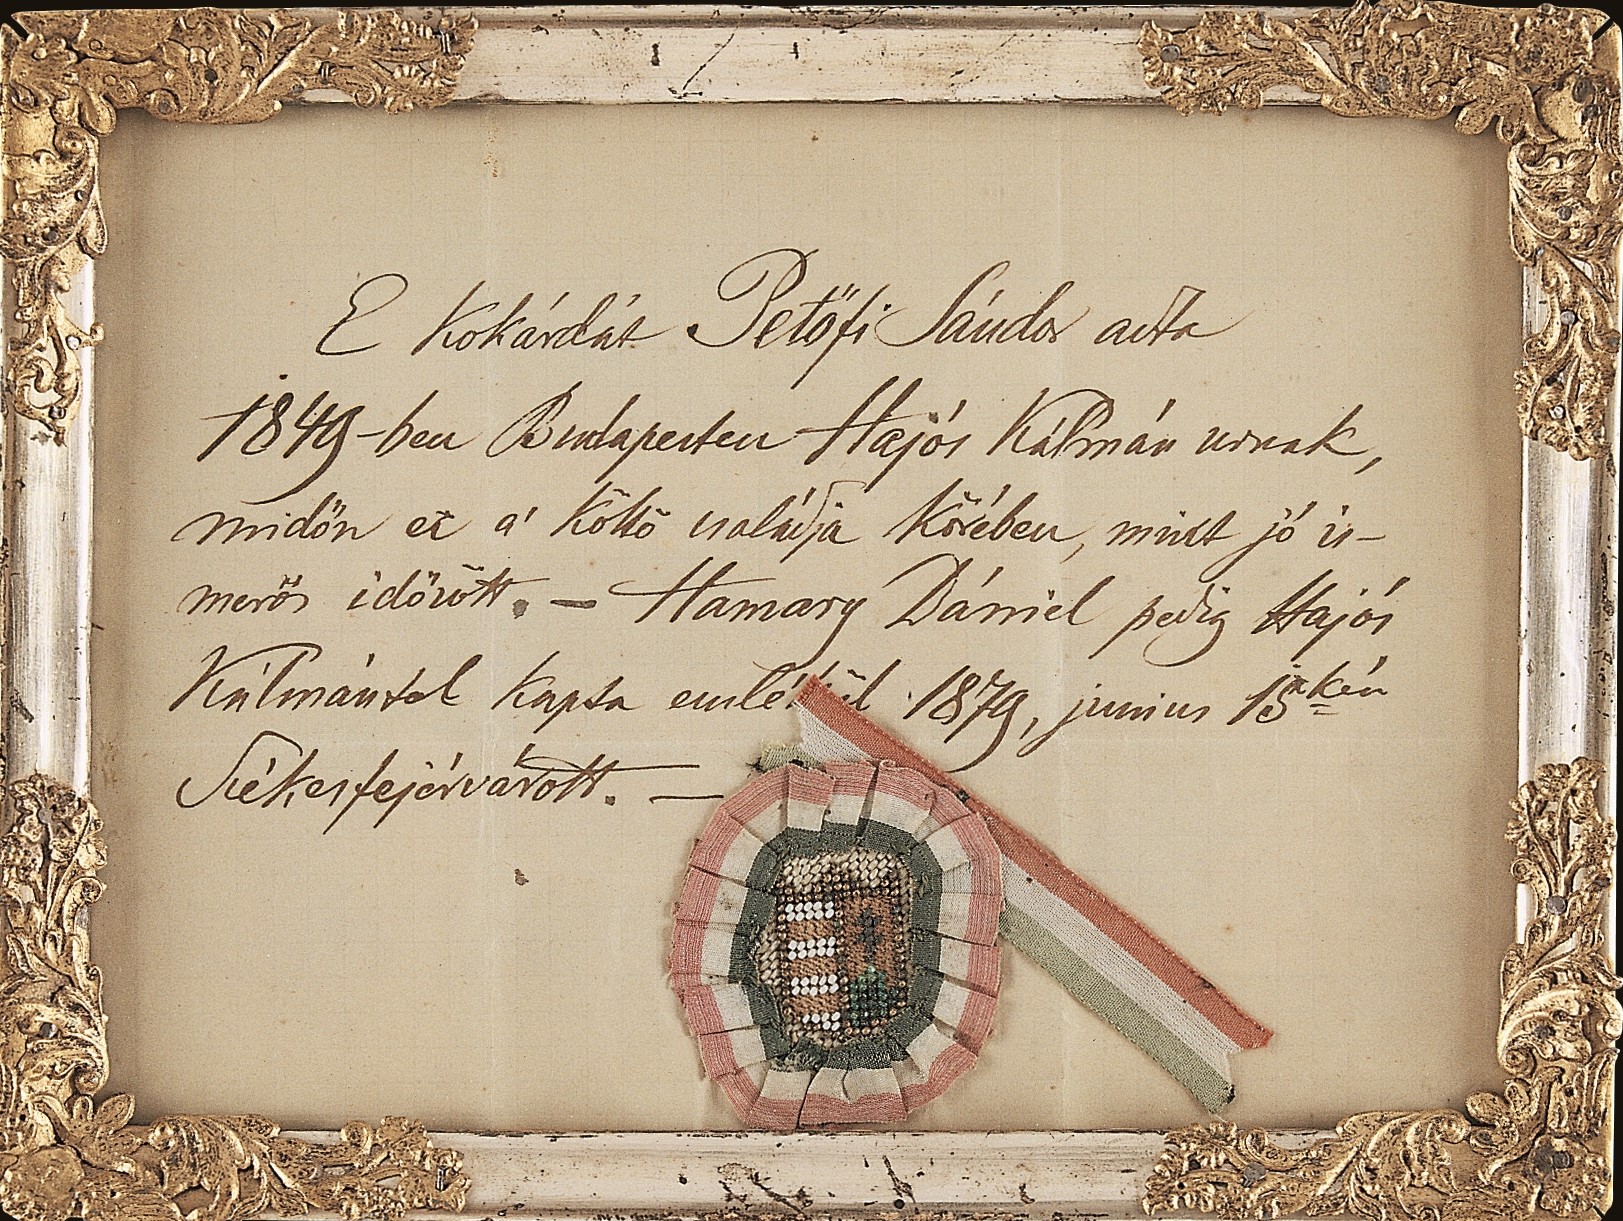 E kokárdát Petőfi Sándor adta
1849-ben Budapesten Hajós Kálmán urnak,
midőn ez a' költő családja körében, mint jó is-
merős időzött. — Hamary Dániel pedig Hajós
Kálmántol kapta emlékül 1879, junius 15-kén
Székesfejérvárott. —